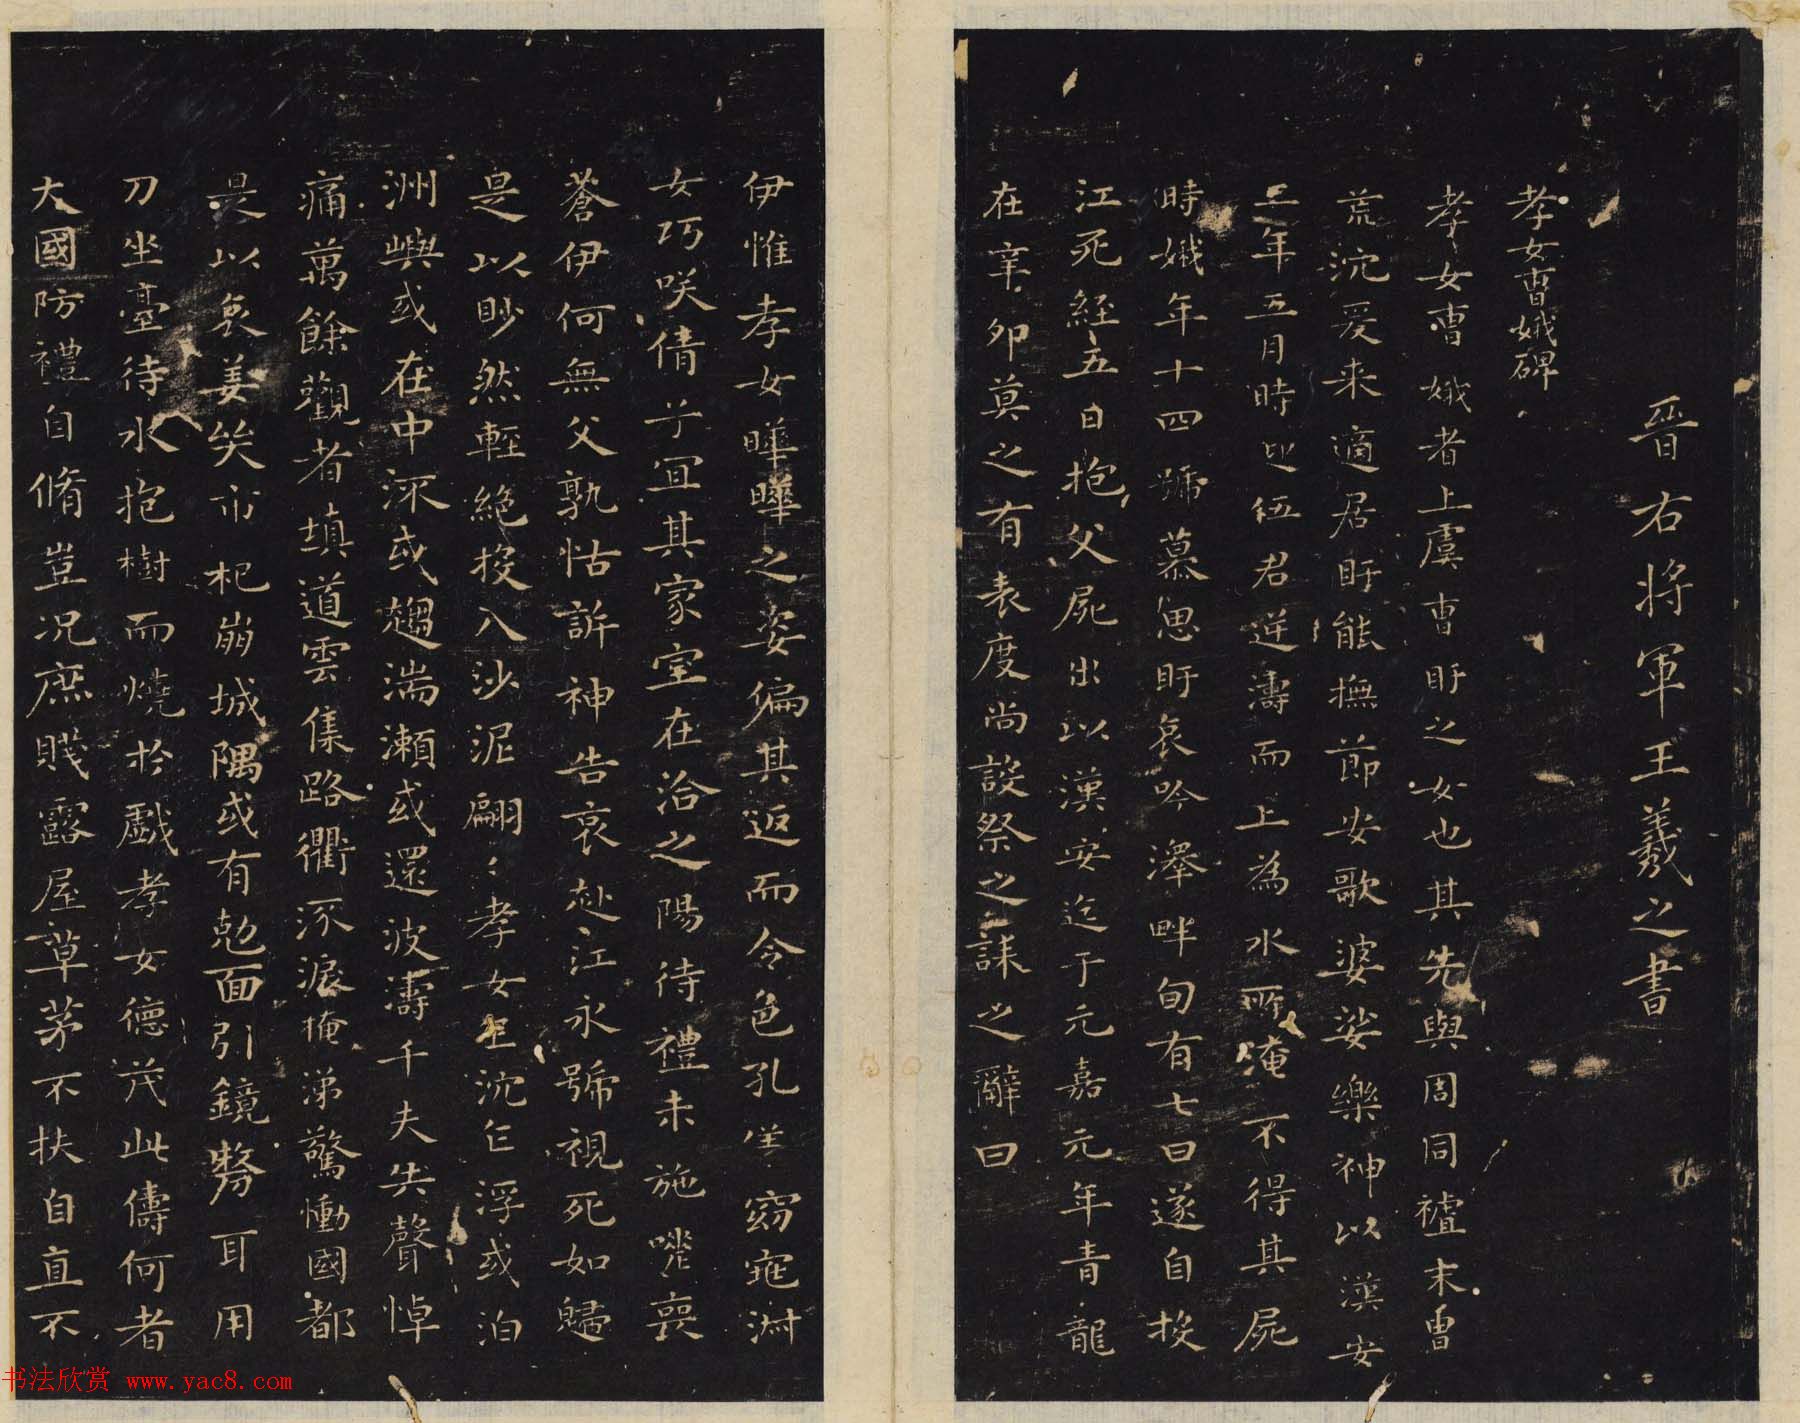 晉右將軍王羲之書
孝女曹娥碑
孝女曹娥者上虞曹盱之女也其先與周同祖末冑
荒沈爰来適居盱能撫節安歌婆娑樂神以漢安
二年五月時迎伍君逆濤而上為水所淹不得其屍
時娥年十四號慕思盱哀吟澤畔旬有七日遂自投
江死經五日抱父屍出以漢安迄于元嘉元年青龍
在辛卯莫之有表度尚設祭之誄之辭曰
伊惟孝女曄曄之姿偏其返而令色孔儀窈窕淑
女巧咲倩兮宜其家室在洽之陽待禮未施嗟喪
蒼伊何無父孰怙訴神告哀赴江永號視死如歸
是以眇然輕絕投入沙泥翩〻孝女乍沈乍浮或泊
洲嶼或在中流或趨湍瀬或還波濤千夫失聲悼
痛萬餘觀者填道雲集路衢泳淚掩涕驚慟國都
是以哀姜哭市杞崩城隅或有尅面引鏡剺耳用
刀坐臺待水抱樹而燒扵戯孝女德茂此儔何者
大國防禮自脩豈况庶賤露屋草茅不扶自直不
书法欣赏 www.yac8.com